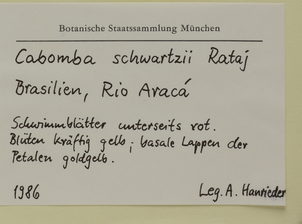 Botanische Staatssammlung München
Cabomba schwartzii Rataj
Brasilien, Rio Aracá
Schwimmblätter unterseits rot.
Blüten kräftig gelb; basale Lappen der
Petalen goldgelb.
1986 Leg. A. Hanrieder